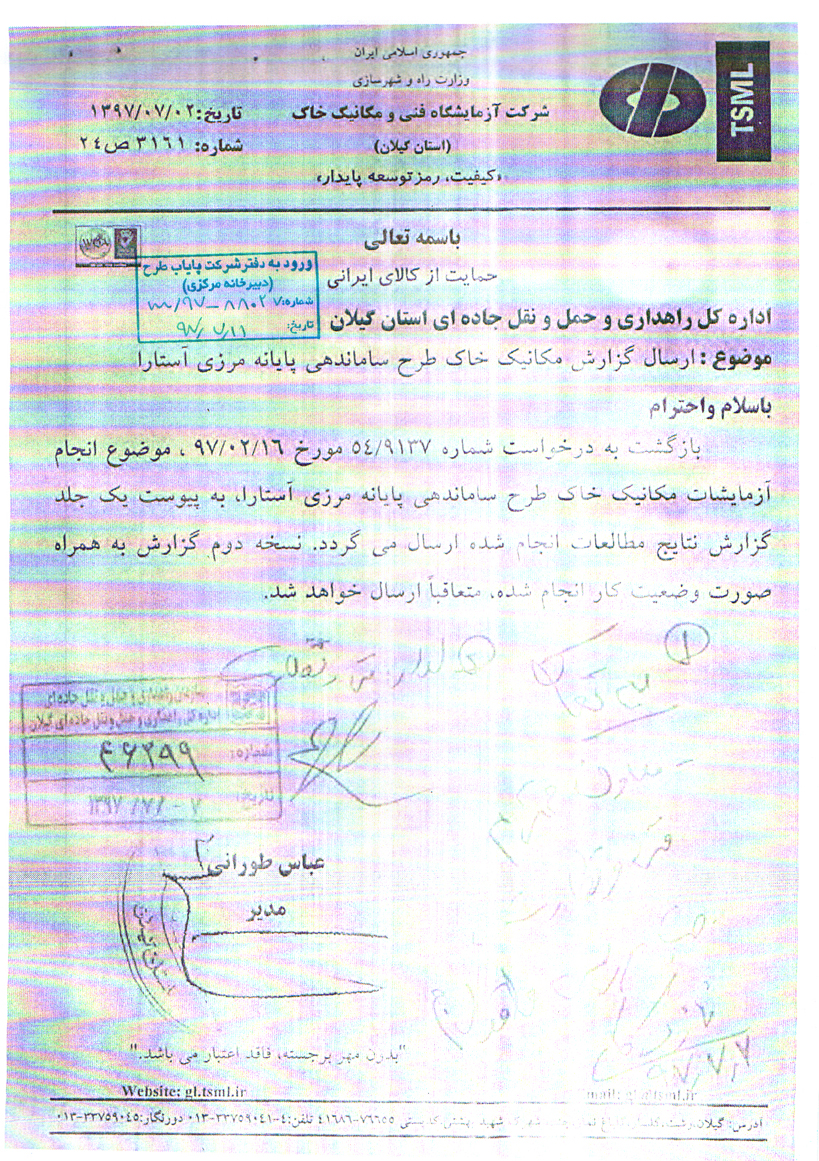 جمهوری اسلامی ایران
وزارت راه و شهرسازی
شرکت آزمایشگاه فنی و مکانیک خاک
(استان گیلان)
«کیفیت، رمز توسعه پایدار»
TSML
تاریخ: ۱۳۹۷/۰۷/۰۲
شماره: ۳۱۶۱ ص ۲٤
باسمه تعالی
حمایت از کالای ایرانی
ورود به دفتر شرکت پایاب طرح
(دبیرخانه مرکزی)
شماره:
تاریخ: ۹۷/۷/۱۱
اداره کل راهداری و حمل و نقل جاده ای استان گیلان
موضوع : ارسال گزارش مکانیک خاک طرح ساماندهی پایانه مرزی آستارا
باسلام واحترام
بازگشت به درخواست شماره ۵٤/۹۱۳۷ مورخ ۹۷/۰۲/۱۶ ، موضوع انجام
آزمایشات مکانیک خاک طرح ساماندهی پایانه مرزی آستارا، به پیوست یک جلد
گزارش نتایج مطالعات انجام شده ارسال می گردد. نسخه دوم گزارش به همراه
صورت وضعیت کار انجام شده، متعاقباً ارسال خواهد شد.
اداره کل راهداری و حمل و نقل جاده ای گیلان
شماره: ۴۶۲۹۹
تاریخ:
عباس طورانی
مدیر
۹۷,۷,۷
"بدون مهر برجسته، فاقد اعتبار می باشد."
Website: gl.tsml.ir
آدرس: گیلان، رشت، گلسار، شهرک شهید بهشتی کدپستی ۷۶۶۵۵-۴۱۶۸۶ تلفن: ۴-۳۳۷۵۹۰۴۱-۰۱۳ دورنگار: ۳۳۷۵۹۰۴۵-۰۱۳